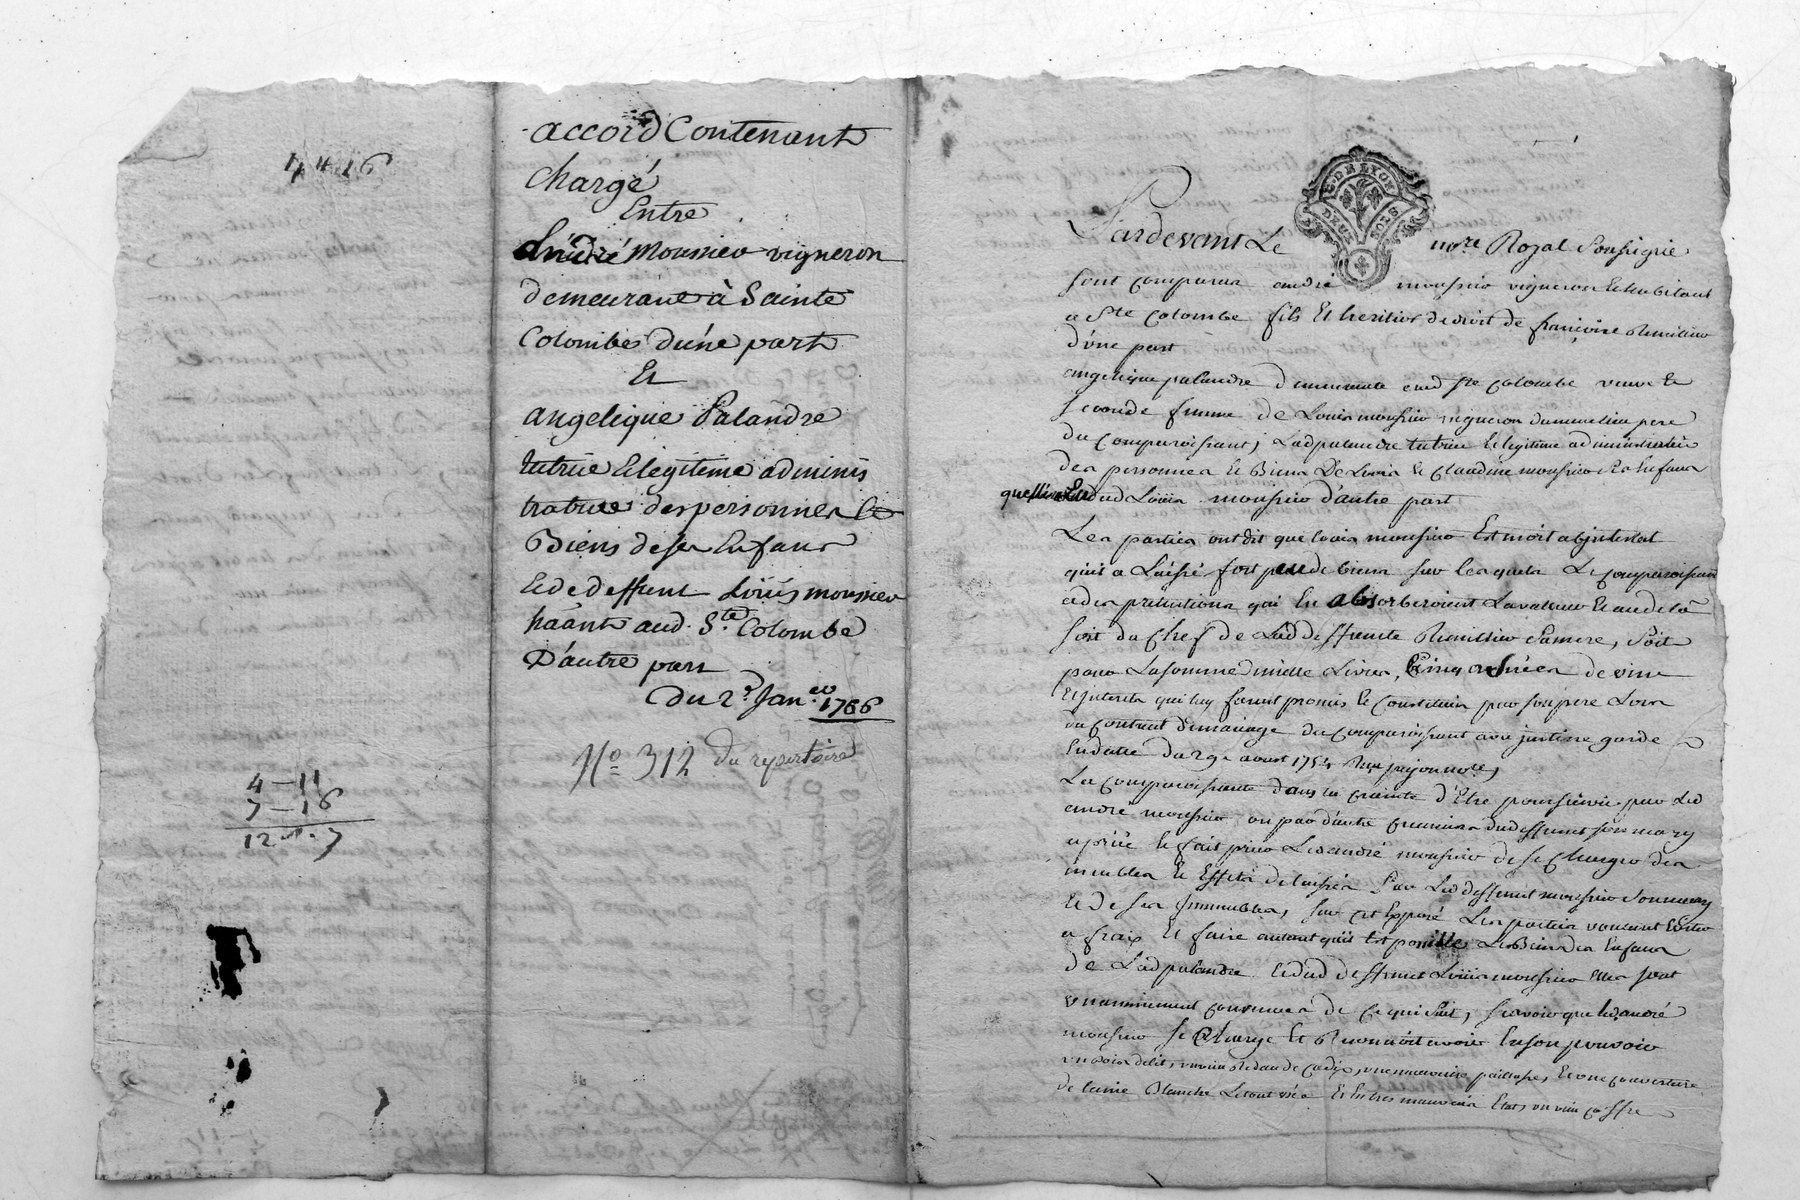 4 " 16
4 - 11
7 - 16
12 - 7
accord Contenant
Chargé
Entre
André Mousnier vigneron
demeurant à Sainte
Colombe d'une part
Et
angelique Palandre
tutrice Elegitime adminis
tratrice des personnes Et
Biens de ses Enfans
Ede deffunt Loüis mousnier
haânt aud. Ste Colombe
D'autre part
du 2e. Janer 1766
No 312 du repertoire
G. DE LYON
DEUX SOLS
Pardevant Le nore Royal soussigné
sont comparus andré mousnier vigneron Et habitant
a Ste Colombe fils Et heritier de droit de françoise
d'une part
angelique palandre demeurante aud Ste Colombe veuve Et
seconde femme de Louis mousnier vigneron dumeme lieu pere
du Comparoissant, Ladpalandre tutrice Et legitime administratrice
des personnes Et Biens De Louis Et Claudine mousnier ses Enfans
dud Loüis mousnier d'autre part
Les parties ont dit que louis mousnier Est mort abjntestat
quil a Laissé fort peu de biens sur lesquels Le comparoissant
ades pretentions qui En absorberoient La valeur Et audela
soit du Chef de Lad deffunte sa mere, soit
pour La somme de mille Livres, Cinq de vin
Et jnterets qui luy furent promis Et Constitués par son pere Lors
du Contrat de mariage du Comparoissant avec justine garde
En datte du 29e aoust 1754 Reçu nore,
La Comparoissante dans la Crainte d'Etre poursuivie par Led
andré mousnier ou par d'autre Creanciers dudeffunt son mary
a prié Et fait prier Led andré mousnier de se Charger des
meubles Et Effets delaissés Par Led deffunt mousnier son mary
Et de ses Jmmeubles, sur cet Exposé Les parties voulant Eviter
a frais Et faire autant quil Est possible Le Bien des Enfans
de Lad palandre Et dud deffunt Loüis mousnier Elles sont
unanimement convenues de Ce qui suit, sçavoir que led. andré
mousnier se Charge Et Reconnoit avoir En son pouvoir
un bois de lit, un rideau de Cadis, une mauvaise paillasse, Et une couverture
de laine Blanche Le tout usé Et En tres mauvais Etat, un vieu coffre